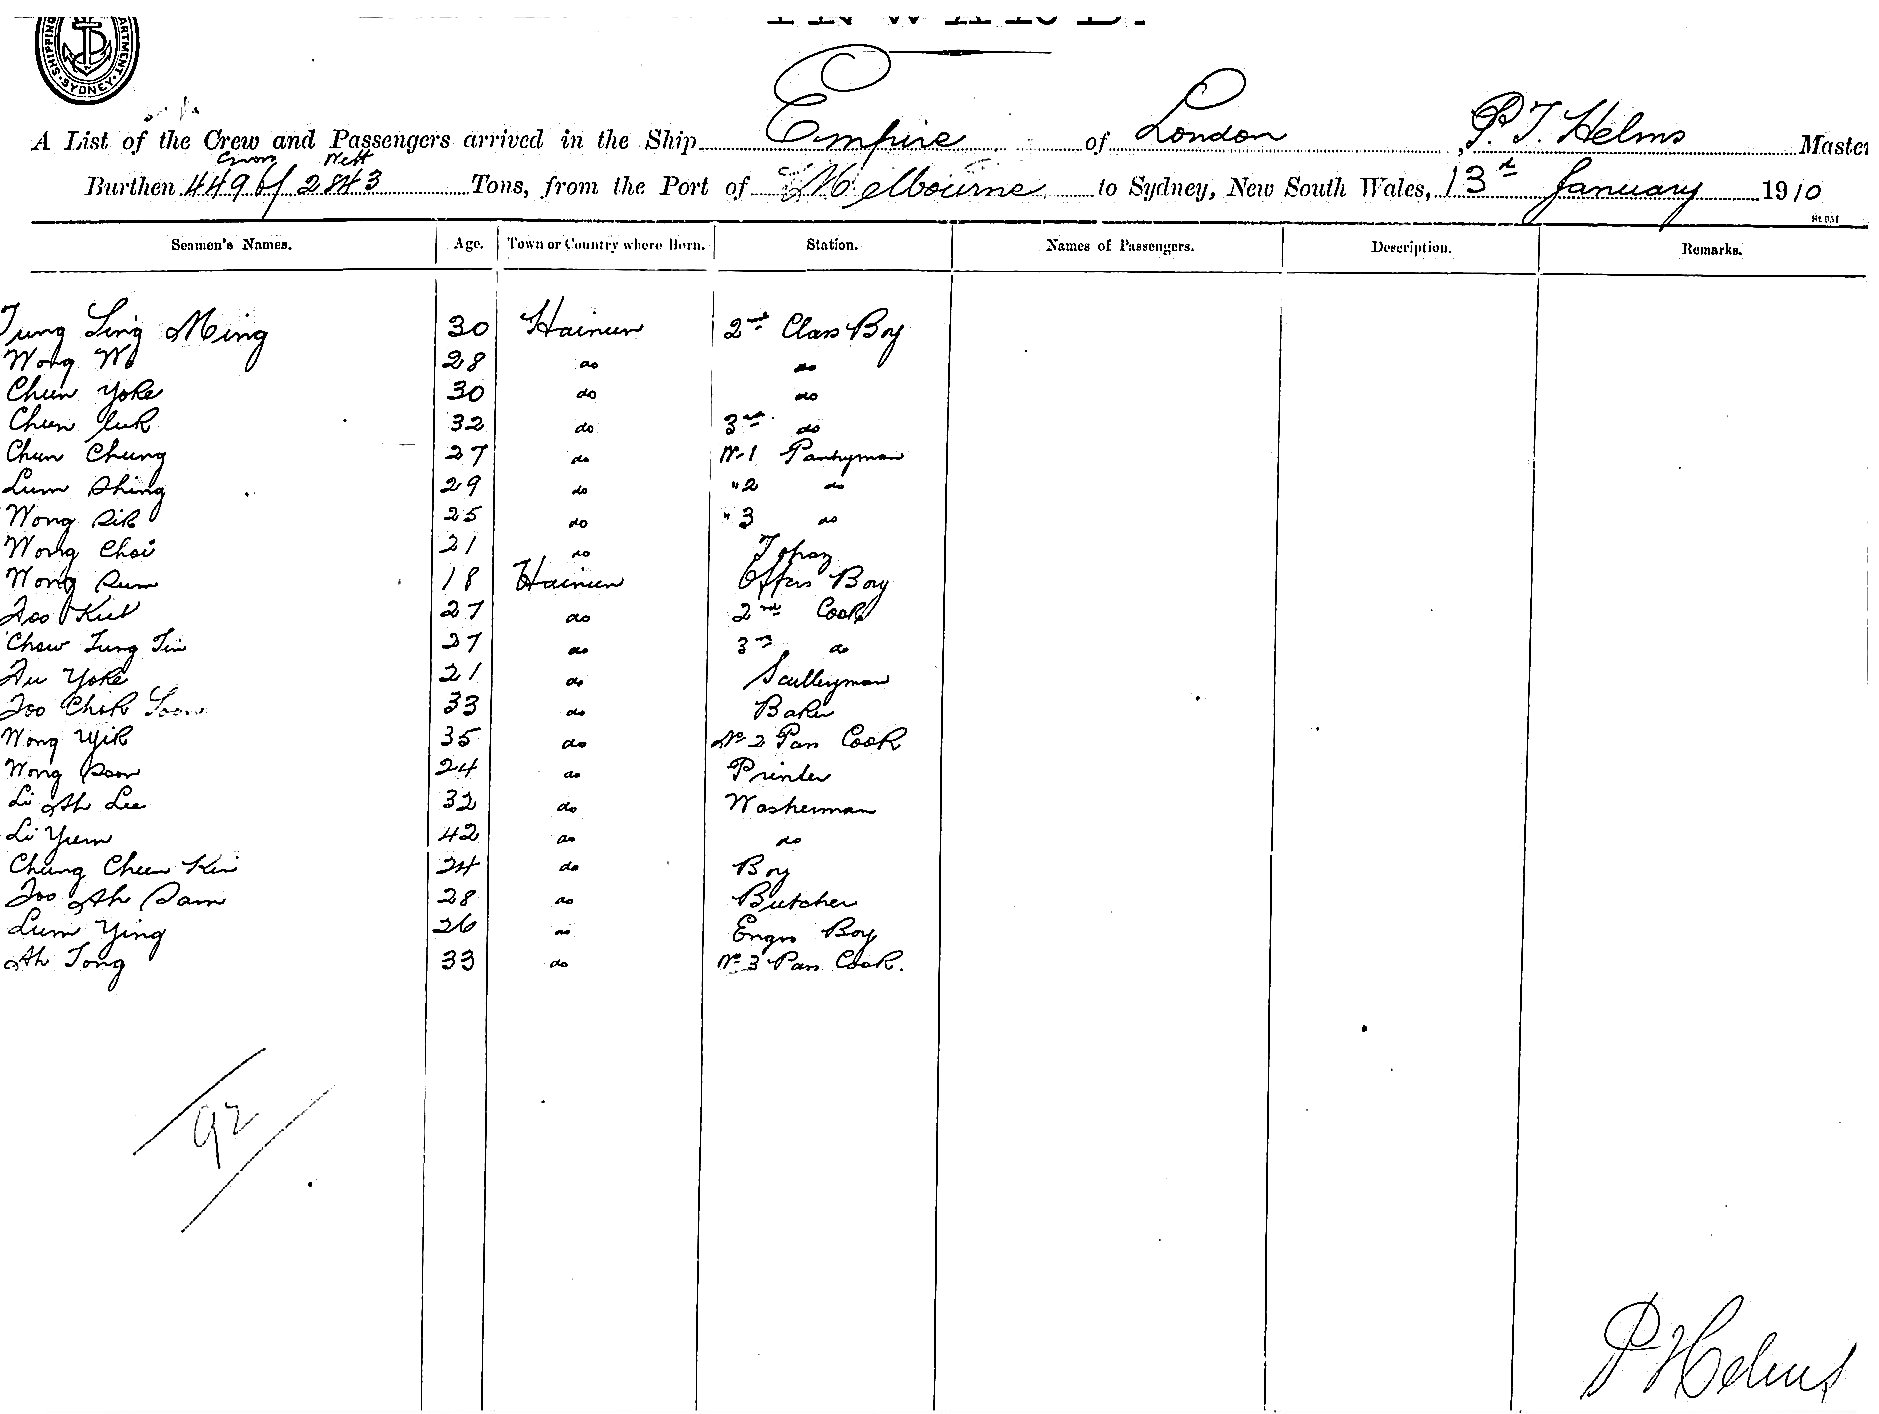 INWARD.
SHIPPING DEPARTMENT SYDNEY
A List of the Crew and Passengers arrived in the Ship Empire of London, P. T. Helms Master
Gross Nett
Burthen 4496/2843 Tons, from the Port of Melbourne to Sydney, New South Wales, 13th January 1910
Seamen's Names. Age. Town or Country where Born. Station. Names of Passengers. Description. Remarks.
Tung Sing Ming 30 Hainun 2nd Class Boy
Wong Wo 28 do do
Chun Yoke 30 do do
Chun Luk 32 do 3rd do
Chun Chung 27 do No 1 Pantryman
Lum Shing 29 do " 2 do
Wong Sik 25 do " 3 do
Wong Choi 21 do Topaz
Wong Sum 18 Hainun Offrs Boy
Foo Kiet 27 do 2nd Cook
Chow Tung Tin 27 do 3rd do
Fu Yoke 21 do Sculleryman
Foo Chok Soon 33 do Baker
Wong Yik 35 do No 2 Pan Cook
Wong Soon 24 do Printer
Li Ah Lee 32 do Washerman
Li Yum 42 do do
Chung Chun Kin 24 do Boy
Foo Ah Sam 28 do Butcher
Lum Ying 26 do Engrs Boy
Ah Tong 33 do No 3 Pan Cook.
92
P Helms